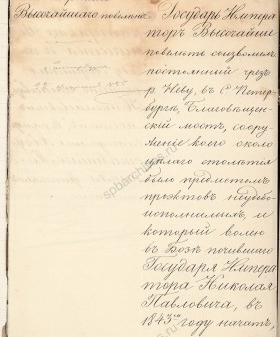 Высочайшаго повеленія
Государь Импера
торъ Высочайше
повелѣть соизволилъ:
постоянный чрезъ
р. Неву, въ С. Петер-
бургѣ, Благовѣщен-
скій мостъ, соору
женіе коего около
цѣлаго столѣтія
было предметомъ
проэктовъ неудобо-
исполнимыхъ, и
который волею
въ Бозѣ почившаго
Государя Импера
тора Николая
Павловича, въ
1843мъ году начатъ,
spbarchives.ru